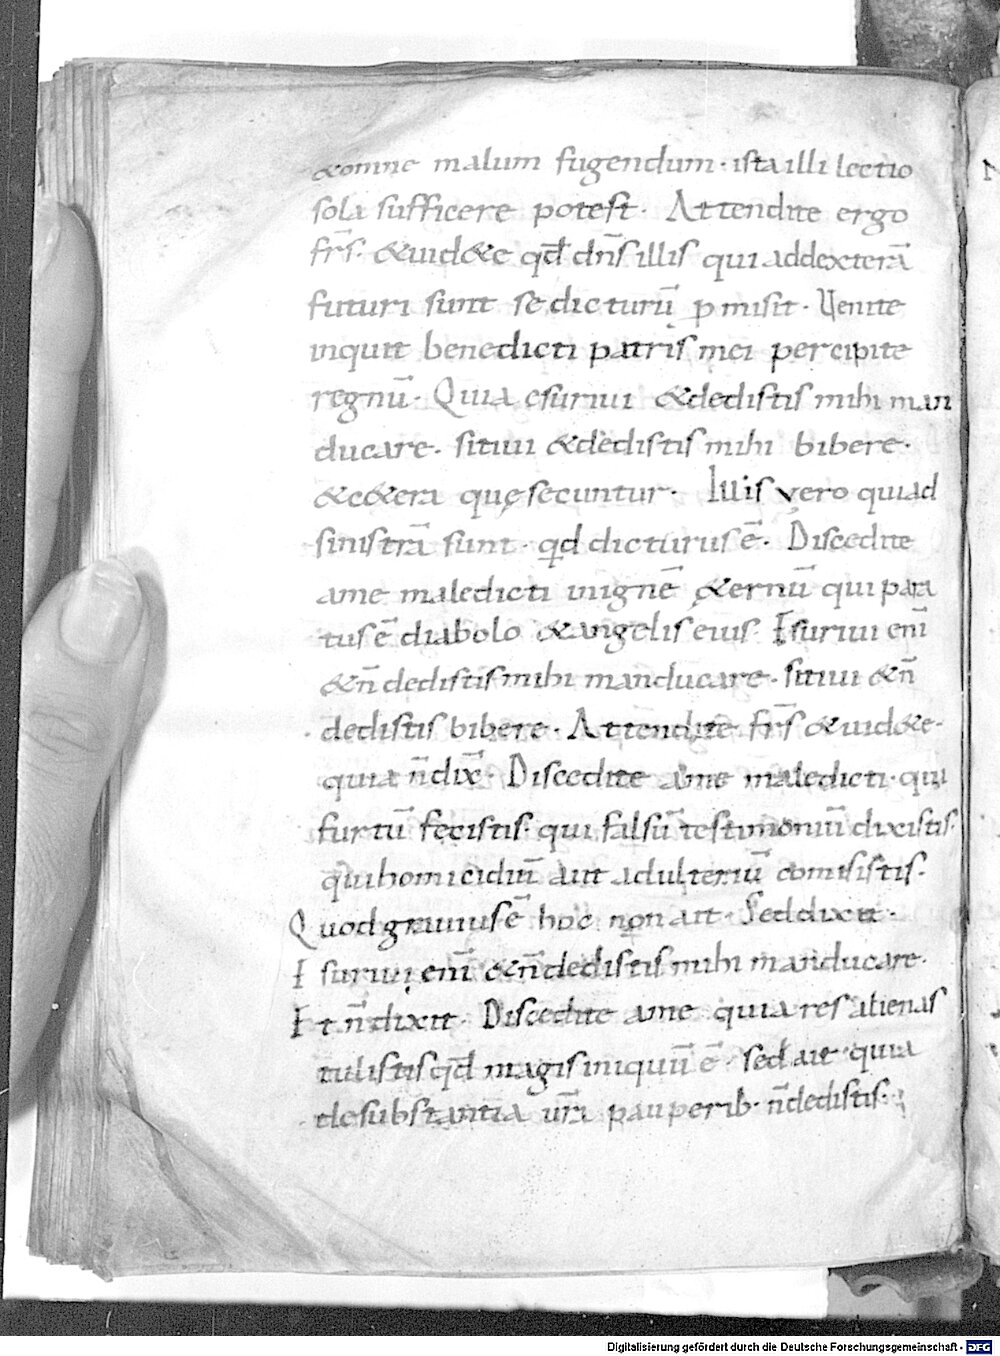 &omne malum fugendum · ista illi lectio
sola sufficere potest · Attendite ergo
frs̄ · &uid&e qd̄ dn̄s illis qui addexterā
futuri sunt se dicturū p misit · Uenite
inquit benedicti patris mei percipite
regnū · Quia esuriui &dedistis mihi man
ducare · sitiui &dedistis mihi bibere ·
&c&era quę secuntur · Illis vero qui ad
sinistrā sunt · qd dicturus ē · Discedite
ame maledicti inignē &ernū qui para
tus ē diabolo &angelis eius · Esuriui eni̅
&n̄ dedistis mihi manducare · sitiui &n̄
dedistis bibere · Attendite frs̄ &uid&e ·
quia n̄ dix̄ · Discedite ame maledicti · qui
furtū fecistis · qui falsū testimoniū dixistis ·
qui homicidiū aut adulteriū comisistis ·
Quod grauius ē hoc non ait · Sed dixit ·
Esuriui eni̅ &n̄ dedistis mihi manducare ·
Et n̄ dixit · Discedite ame quia res alienas
tulistis qd̄ magis iniquū ē · sed ait quia
de substantia ur̄a pauperib · n̄ dedistis ·
Digitalisierung gefördert durch die Deutsche Forschungsgemeinschaft - DFG